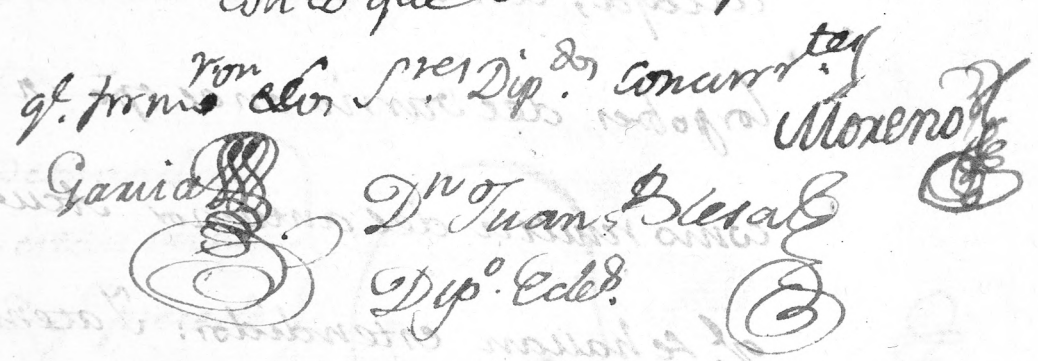 con lo que
qe. firmaron los Sres. Dipdos. concurrtes
Moreno
Garcia
Dn Juan Blesa
Dipo. Ecleo.